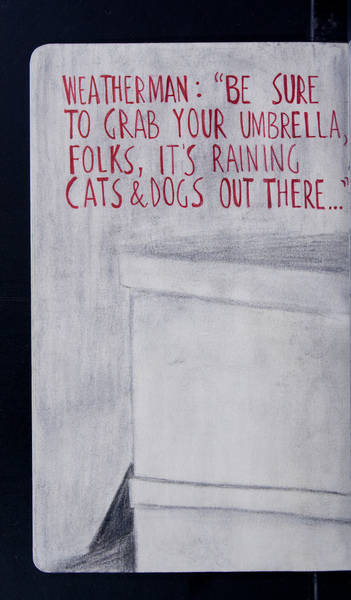 WEATHERMAN: "BE SURE
TO GRAB YOUR UMBRELLA,
FOLKS, IT'S RAINING
CATS & DOGS OUT THERE..."